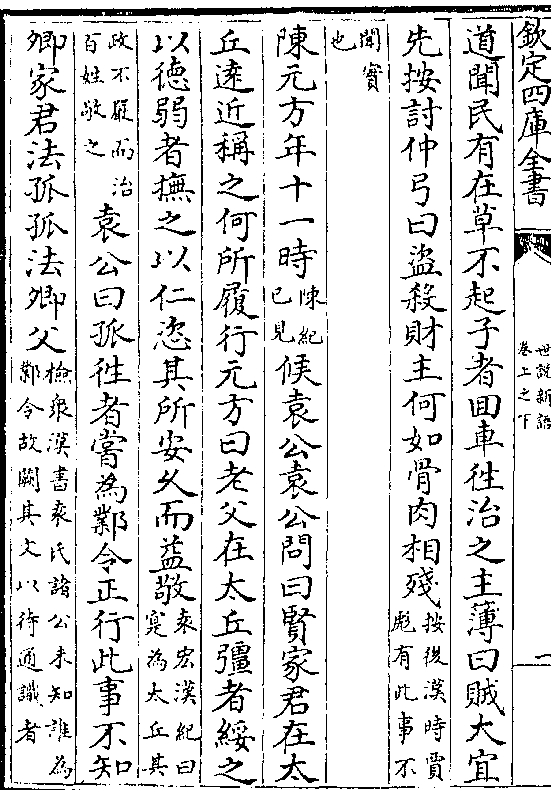 欽定四庫全書
世說新語
卷上之下
一
道聞民有在草不起子者回車徃治之主簿曰賊大宜
先按討仲弓曰盜殺財主何如骨肉相殘
按後漢時賈
彪有此事不
聞實
也
陳元方年十一時
陳紀
已見
候袁公袁公問曰賢家君在太
丘遠近稱之何所履行元方曰老父在太丘彊者綏之
以德弱者撫之以仁恣其所安久而益敬
袁宏漢紀曰
寔為太丘其
政不嚴而治
百姓敬之
袁公曰孤徃者嘗為鄴令正行此事不知
卿家君法孤孤法卿父
檢衆漢書袁氏諸公未知誰為
鄴令故闕其文以待通識者